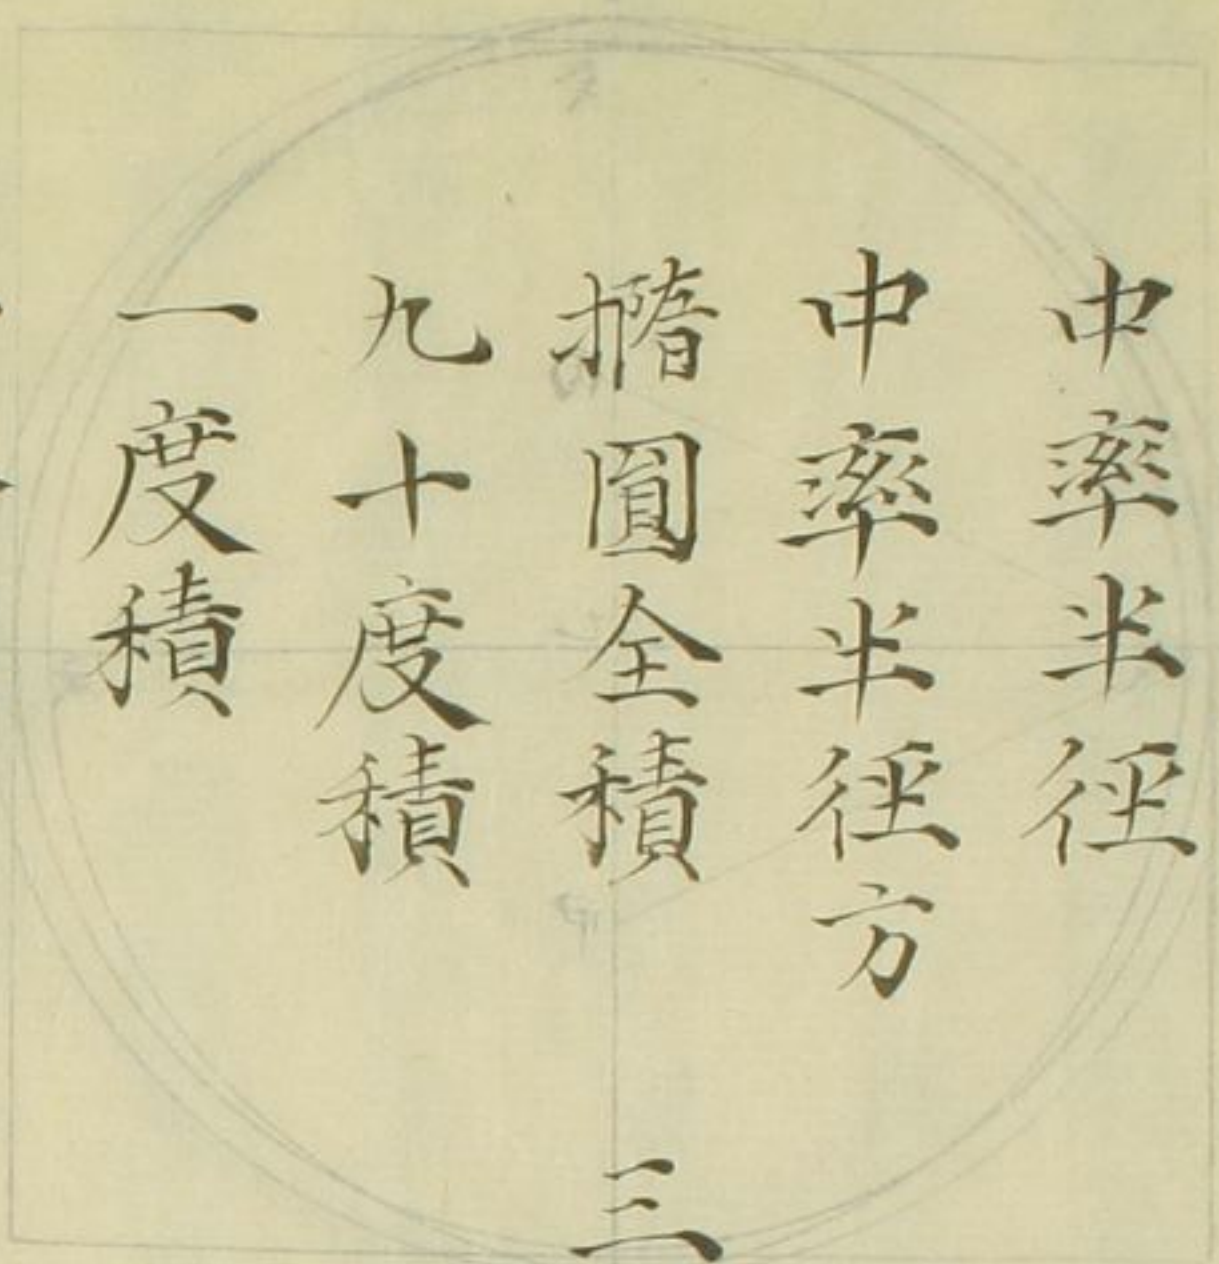 中率半徑
中率半徑方
撱圓全積 三
九十度積
一度積